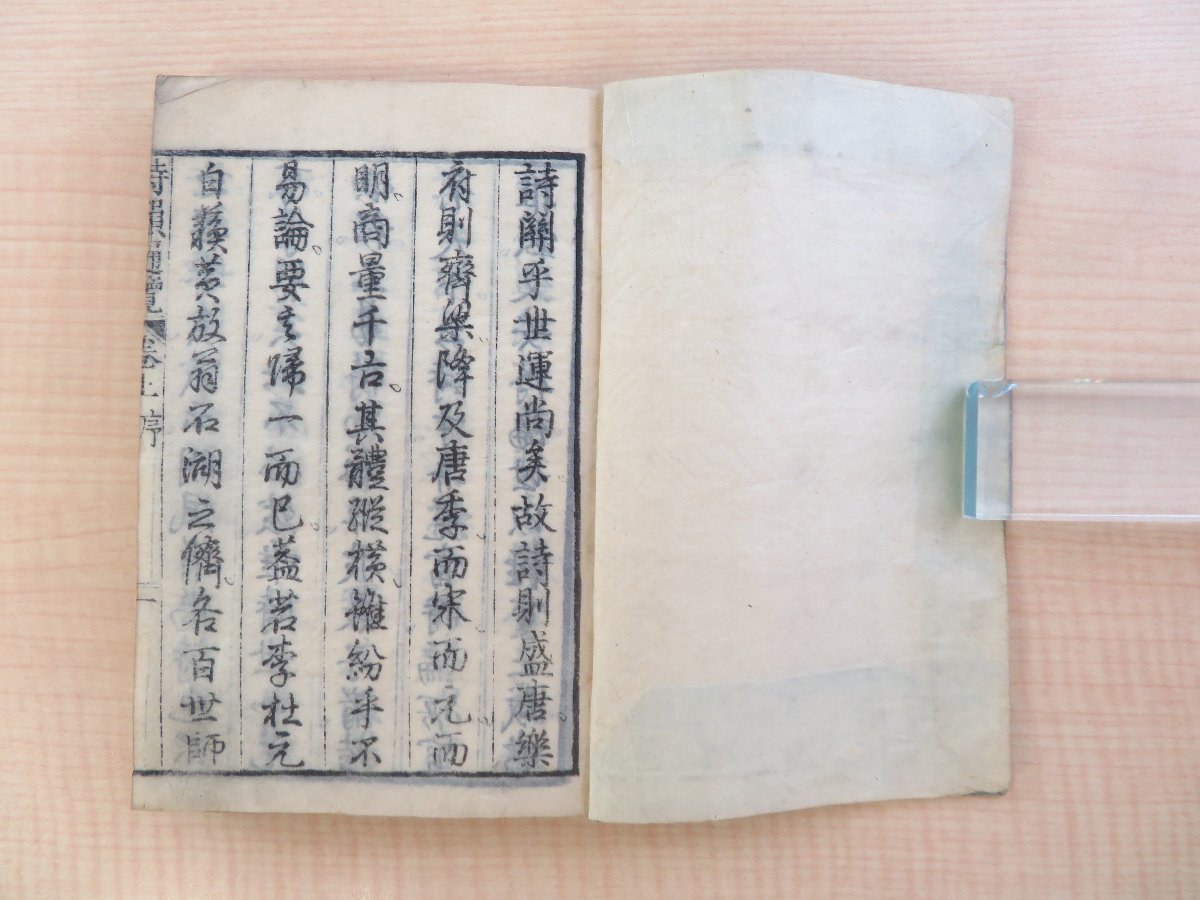 詩關乎世運尚矣故詩則盛唐。樂
府則齊梁。降及唐季而宋而元。而
明。商量千古。其體縱橫。雖紛乎不
易論。要之歸一而已。蓋若李杜元
白蘇黃放翁石湖之儔。名百世師
詩韻通覽 卷上 序 一